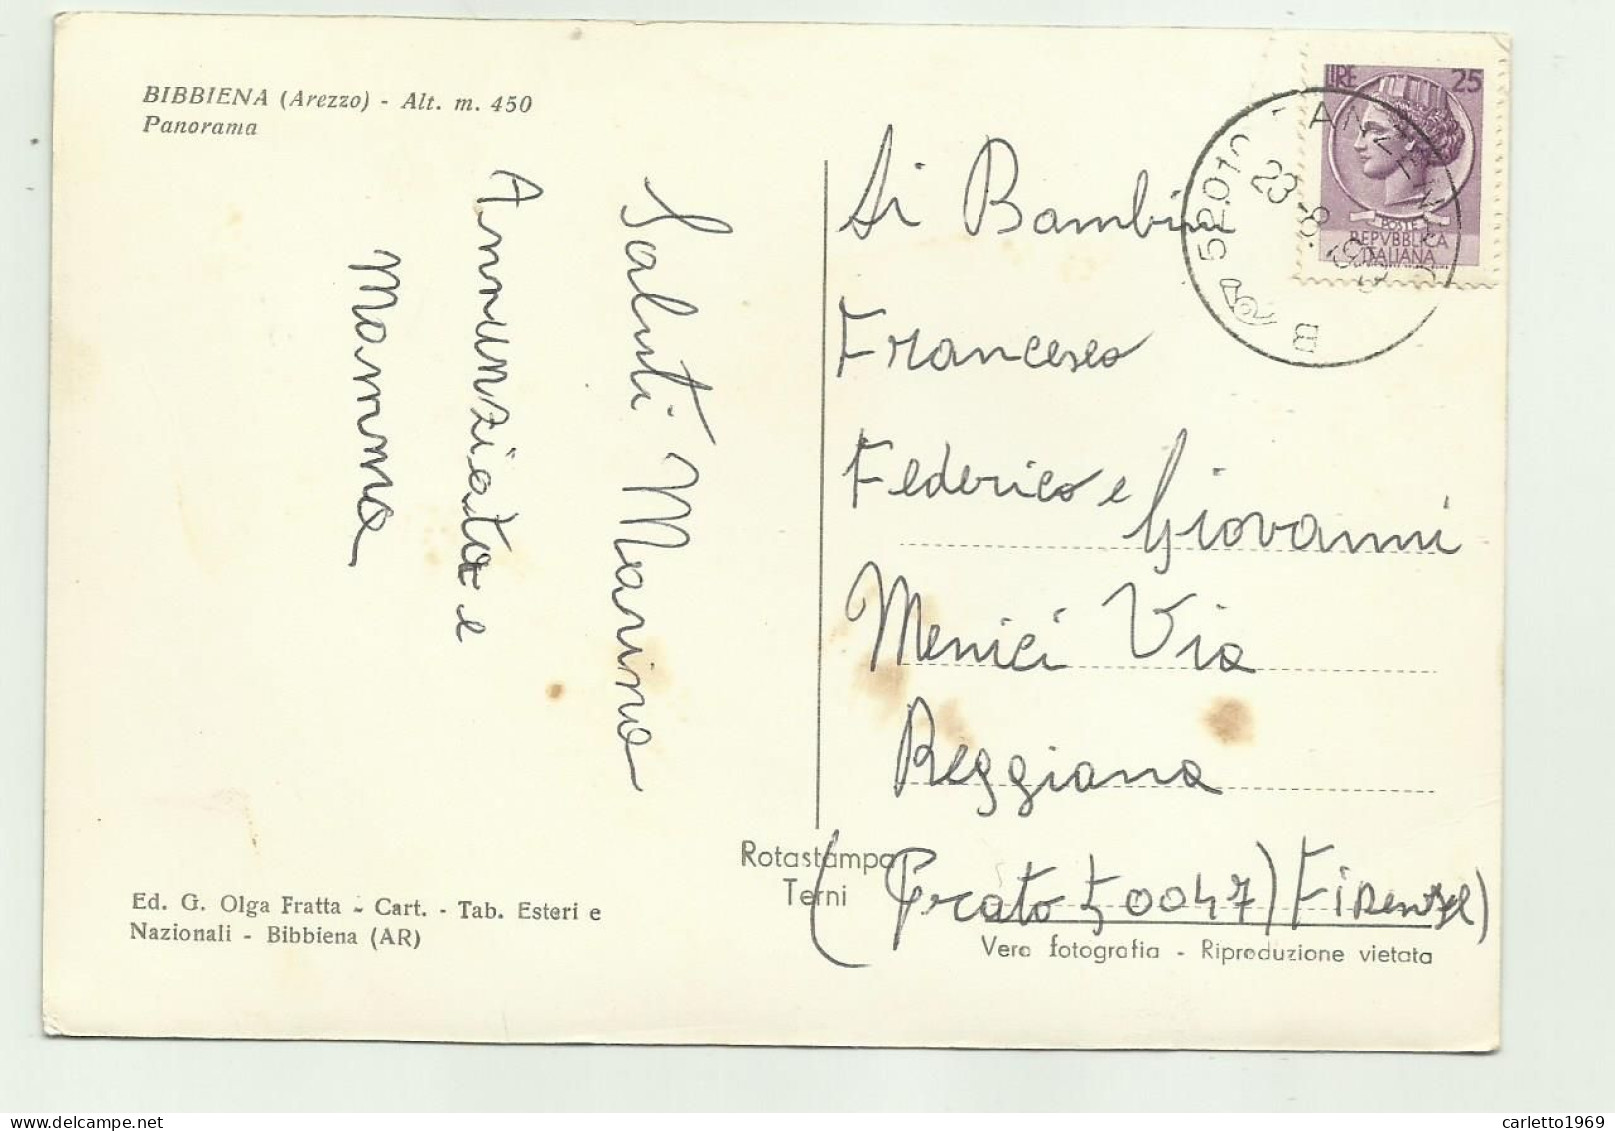 BIBBIENA (Arezzo) - Alt. m. 450
Panorama
Saluti Marino
Annunziata e
Mamma
LIRE 25
POSTE
REPVBBLICA
ITALIANA
23 -8
B
Ai Bambini
Francesco
Federico e Giovanni
Menici Via
Reggiana
(Prato 50047) Firenze)
Rotastampa
Terni
Ed. G. Olga Fratta - Cart. - Tab. Esteri e
Nazionali - Bibbiena (AR)
Vera fotografia - Riproduzione vietata
carletto1969